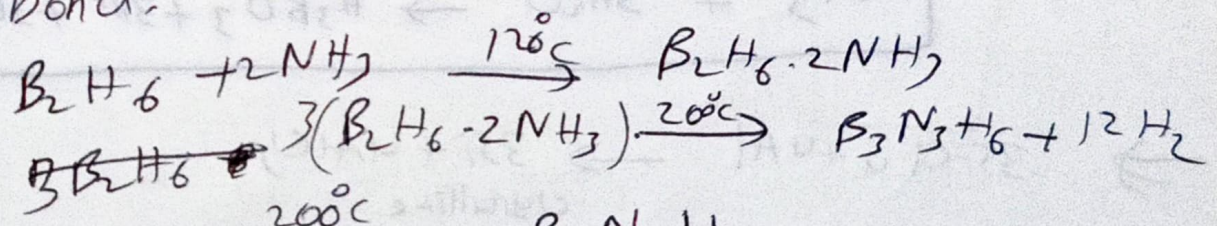 B₂H₆ + 2NH₃ 120°C → B₂H₆·2NH₃
3(B₂H₆·2NH₃) 200°C → B₃N₃H₆ + 12H₂
200°C